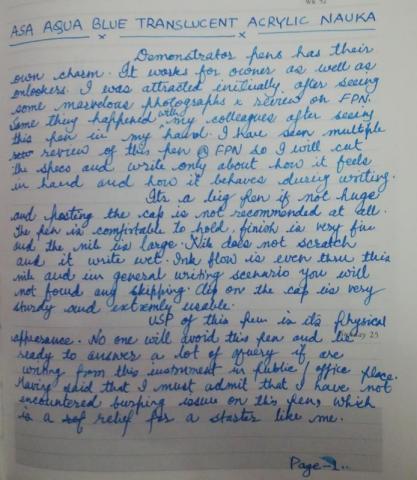 ASA AQUA BLUE TRANSLUCENT ACRYLIC NAUKA
Demonstrator pens has their
own charm. It works for owner as well as
onlookers. I was attracted initially after seeing
some marvelous photographs & review on FPN.
Same they happened with my colleagues after seeing
this pen in my hand. I have seen multiple
review of this pen @ FPN so I will cut
the specs and write only about how it feels
in hand and how it behaves during writing.
Its a big pen if not huge
and posting the cap is not recommended at all.
The pen is comfortable to hold, finish is very fine
and the nib is large. Nib does not scratch
and it write wet. Ink flow is even thru this
nib and in general writing scenario you will
not found any skipping. Clip on the cap is very
sturdy and extremly usable.
USP of this pen is its physical
appearance. No one will avoid this pen and be
ready to answer a lot of query if are
writing from this instrument in public / office place.
Having said that I must admit that I have not
encountered burping issue on this pen, which
is a relief for a starter like me.
Page-1..